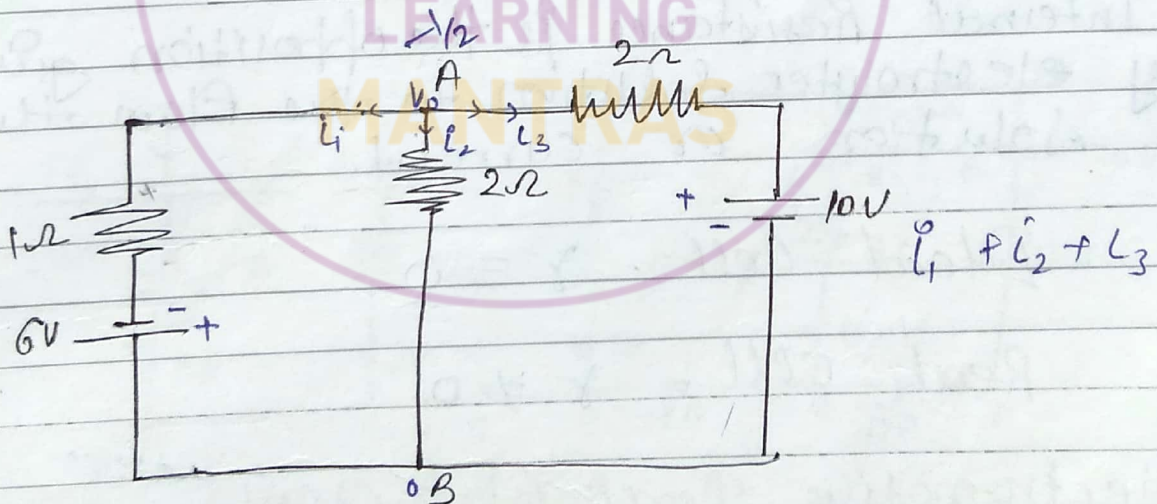 LEARNING
MANTRAS
1/2
A
2Ω
V₀
i₁
i₂
i₃
2Ω
1Ω
+
-
10V
i₁ + i₂ + i₃
6V
-
+
0 B